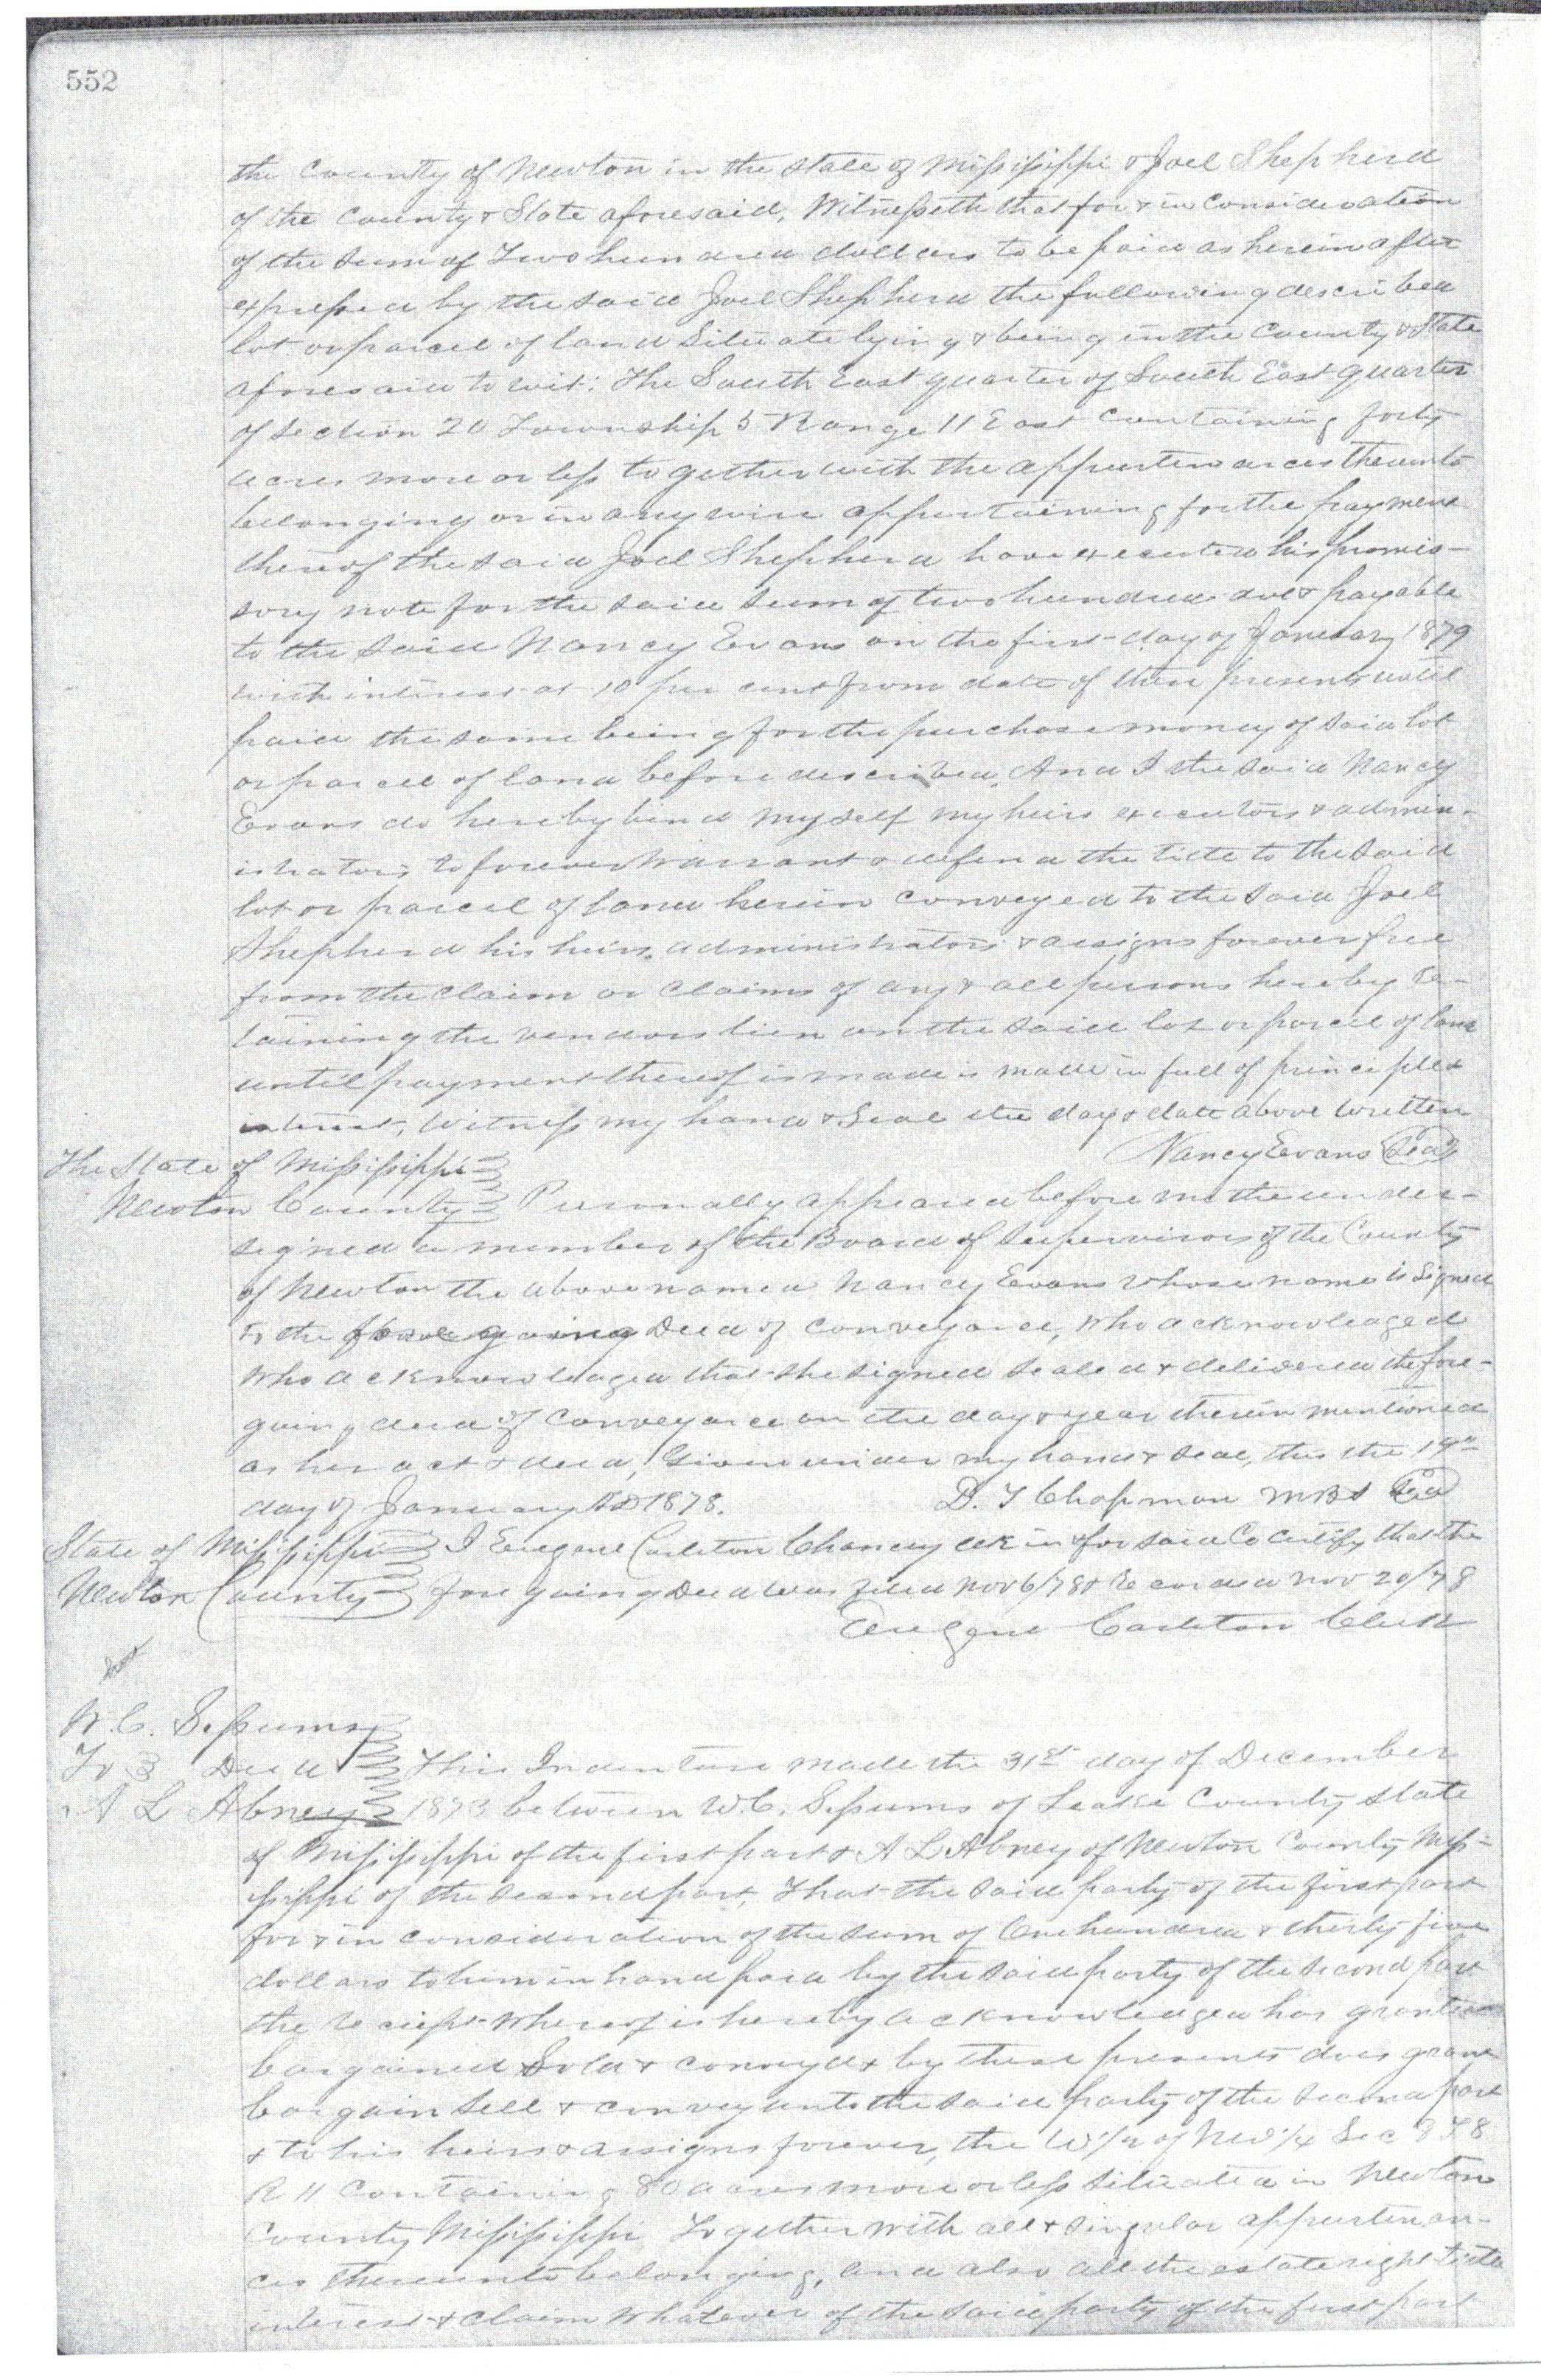 552
the County of Newton in the State of Mississippi & Joel Shepherd
of the County & State aforesaid, Witnesseth that for & in Consideration
of the Sum of Two hundred dollars to be paid as herein after
expressed by the said Joel Shepherd the following described
lot or parcel of land Situate lying & being in the County & State
aforesaid to wit: The South East quarter of South East quarter
of Section 20 Township 5 Range 11 East Containing forty
acres more or less together with the appurtenances thereunto
belonging or in any wise appertaining for the payment
thereof the said Joel Shepherd have executed his promis-
sory note for the said sum of two hundred due & payable
to the said Nancy Evans on the first day of January 1879
with interest at 10 per cent from date of these presents until
paid the same being for the purchase money of said lot
or parcel of land before described. And I the said Nancy
Evans do hereby bind myself my heirs executors & admin-
istrators to forever Warrant & defend the title to the said
lot or parcel of land herein conveyed to the said Joel
Shepherd his heirs, administrators & assigns forever free
from the claim or claims of any & all persons hereby re-
taining the vendors lien on the said lot or parcel of land
until payment thereof is made is made in full of principle &
interest, Witness my hand & Seal the day & date above written
Nancy Evans Seal
The State of Mississippi
Newton County Personally appeared before me the under-
signed a member of the Board of Supervisors of the County
of Newton the above named Nancy Evans whose name is Signed
to the foregoing Deed of Conveyance, who acknowledged
who acknowledged that she signed sealed & delivered the fore-
going deed of Conveyance on the day & year therein mentioned
as her act & deed, Given under my hand & seal, this the 19th
day of January AD 1878. D. T Chapman MBS Seal
State of Mississippi I Eugene Carleton Chancy clk in & for said Co certify that the
Newton County foregoing Deed was filed Nov 6/78 & Recorded Nov 20/78
Eugene Carleton Clerk
W. C. Sessums
To Deed This Indenture made the 31st day of December
A L Abney 1873 between W. C. Sessums of Leake County State
of Mississippi of the first part & A L Abney of Newton County Miss-
issippi of the second part, That the said party of the first part
for & in consideration of the sum of One hundred & thirty five
dollars to him in hand paid by the said party of the second part
the reciept whereof is hereby acknowledged has granted
bargained Sold & conveyed & by these presents does grant
bargain sell & convey unto the said party of the second part
& to his heirs & assigns forever, the W 1/2 of NW 1/4 Sec 8 T 8
R 11 Containing 80 acres more or less situated in Newton
County Mississippi Together with all & singular appurtenan-
ces thereunto belonging, and also all the estate right title
interest & claim whatever of the said party of the first part